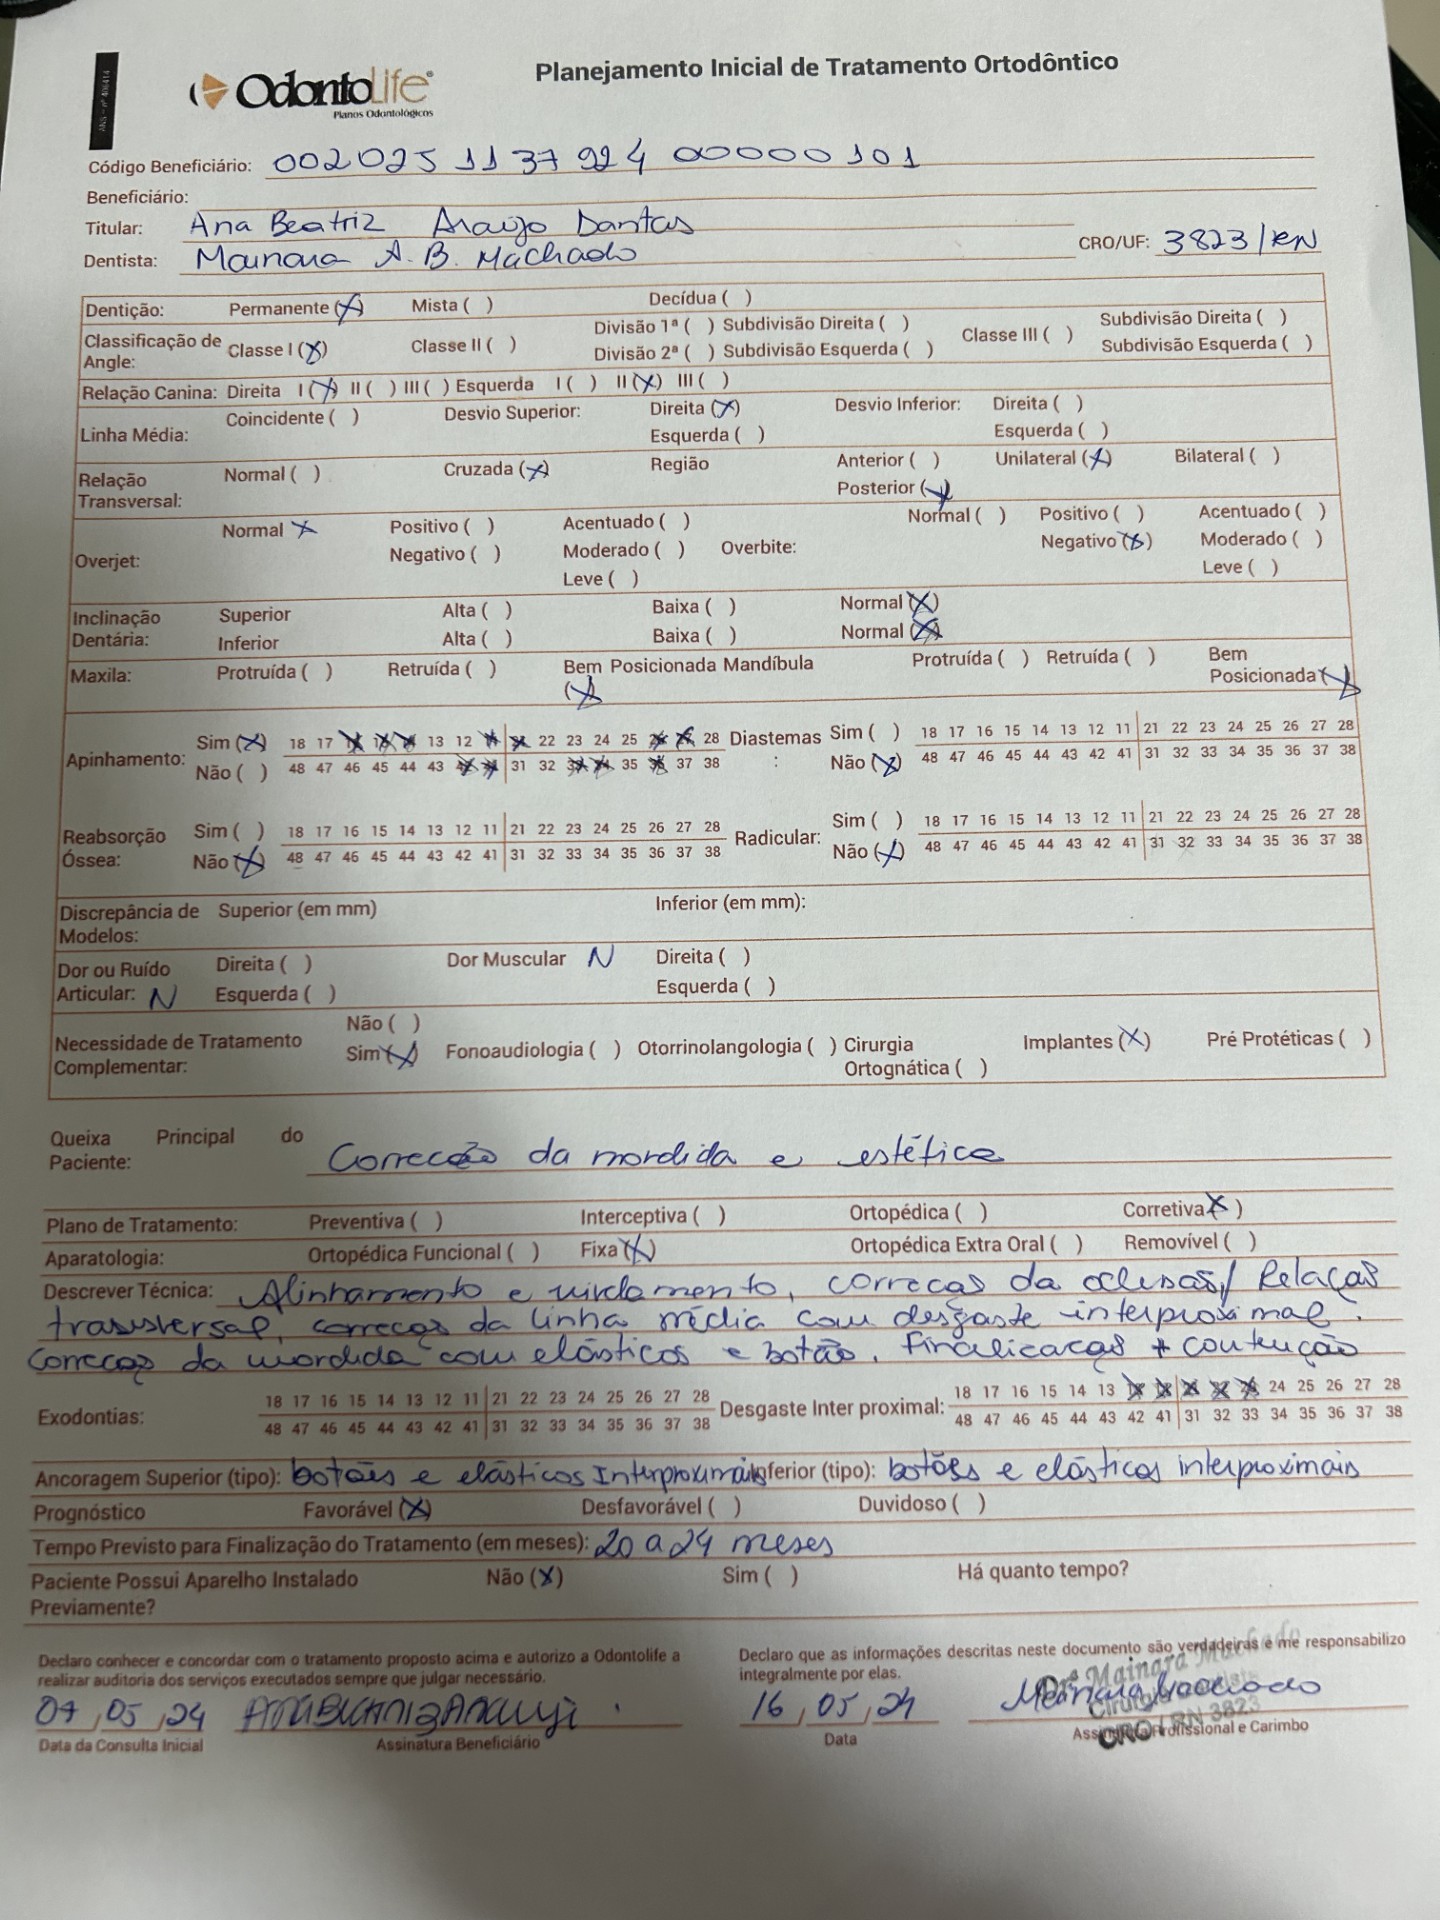 ANS - nº 406414
OdontoLife
Planos Odontológicos
Planejamento Inicial de Tratamento Ortodôntico
Código Beneficiário: 002025 11 37 924 00000 101
Beneficiário:
Titular: Ana Beatriz Araujo Dantas
Dentista: Mainara A. B. Machado CRO/UF: 3823/RN
Dentição: Permanente (X) Mista ( ) Decídua ( )
Classificação de Angle: Classe I (X) Classe II ( ) Divisão 1ª ( ) Subdivisão Direita ( ) Classe III ( ) Subdivisão Direita ( )
Divisão 2ª ( ) Subdivisão Esquerda ( ) Subdivisão Esquerda ( )
Relação Canina: Direita I (X) II ( ) III ( ) Esquerda I ( ) II (X) III ( )
Linha Média: Coincidente ( ) Desvio Superior: Direita (X) Desvio Inferior: Direita ( )
Esquerda ( ) Esquerda ( )
Relação Transversal: Normal ( ) Cruzada (X) Região Anterior ( ) Unilateral (X) Bilateral ( )
Posterior (X)
Overjet: Normal X Positivo ( ) Acentuado ( ) Overbite: Normal ( ) Positivo ( ) Acentuado ( )
Negativo ( ) Moderado ( ) Negativo (X) Moderado ( )
Leve ( ) Leve ( )
Inclinação Dentária: Superior Alta ( ) Baixa ( ) Normal (X)
Inferior Alta ( ) Baixa ( ) Normal (X)
Maxila: Protruída ( ) Retruída ( ) Bem Posicionada (X) Mandíbula Protruída ( ) Retruída ( ) Bem Posicionada (X)
Apinhamento: Sim (X) 18 17 13 12 22 23 24 25 28 Diastemas : Sim ( ) 18 17 16 15 14 13 12 11 21 22 23 24 25 26 27 28
Não ( ) 48 47 46 45 44 43 31 32 35 37 38 Não (X) 48 47 46 45 44 43 42 41 31 32 33 34 35 36 37 38
Reabsorção Óssea: Sim ( ) 18 17 16 15 14 13 12 11 21 22 23 24 25 26 27 28 Radicular: Sim ( ) 18 17 16 15 14 13 12 11 21 22 23 24 25 26 27 28
Não (X) 48 47 46 45 44 43 42 41 31 32 33 34 35 36 37 38 Não (X) 48 47 46 45 44 43 42 41 31 32 33 34 35 36 37 38
Discrepância de Modelos: Superior (em mm) Inferior (em mm):
Dor ou Ruído Articular: N Direita ( ) Dor Muscular N Direita ( )
Esquerda ( ) Esquerda ( )
Necessidade de Tratamento Complementar: Não ( )
Sim (X) Fonoaudiologia ( ) Otorrinolangologia ( ) Cirurgia Ortognática ( ) Implantes (X) Pré Protéticas ( )
Queixa Principal do Paciente: Correcão da mordida e estética
Plano de Tratamento: Preventiva ( ) Interceptiva ( ) Ortopédica ( ) Corretiva X )
Aparatologia: Ortopédica Funcional ( ) Fixa (X) Ortopédica Extra Oral ( ) Removível ( )
Descrever Técnica: Alinhamento e nivelamento, correcas da oclusão/ Relaças
trasnversal, correcas da linha média com desgaste interproximal.
Correcas da mordida com elásticos e botão. Finalicacas + contenção
Exodontias: 18 17 16 15 14 13 12 11 21 22 23 24 25 26 27 28 Desgaste Inter proximal: 18 17 16 15 14 13 24 25 26 27 28
48 47 46 45 44 43 42 41 31 32 33 34 35 36 37 38 48 47 46 45 44 43 42 41 31 32 33 34 35 36 37 38
Ancoragem Superior (tipo): botões e elásticos Interproximais Inferior (tipo): botões e elásticos interproximais
Prognóstico Favorável (X) Desfavorável ( ) Duvidoso ( )
Tempo Previsto para Finalização do Tratamento (em meses): 20 a 24 meses
Paciente Possui Aparelho Instalado Previamente? Não (X) Sim ( ) Há quanto tempo?
Declaro conhecer e concordar com o tratamento proposto acima e autorizo a Odontolife a
realizar auditoria dos serviços executados sempre que julgar necessário.
Declaro que as informações descritas neste documento são verdadeiras e me responsabilizo
integralmente por elas.
Drª Mainara Machado
CRO / RN 3823
07, 05, 24 16, 05, 24
Data da Consulta Inicial Assinatura Beneficiário Data Assinatura Profissional e Carimbo